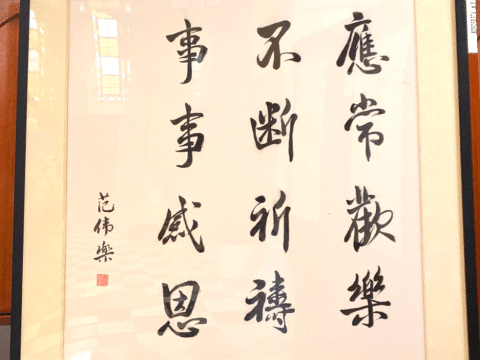 應常歡樂
不断祈禱
事事感恩
范伟樂